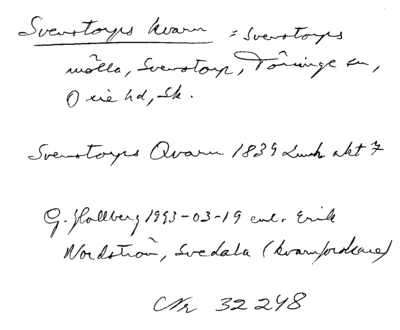 Svenstorps kvarn = Svenstorps
mölla, Svenstorp, Törringe sn,
Oxie hd, Sk.
Svenstorps Qvarn 1839 Lmk akt 7
G. Hallberg 1993-03-19 enl. Erik
Nordström, Svedala (kvarnforskare)
Nr 32248